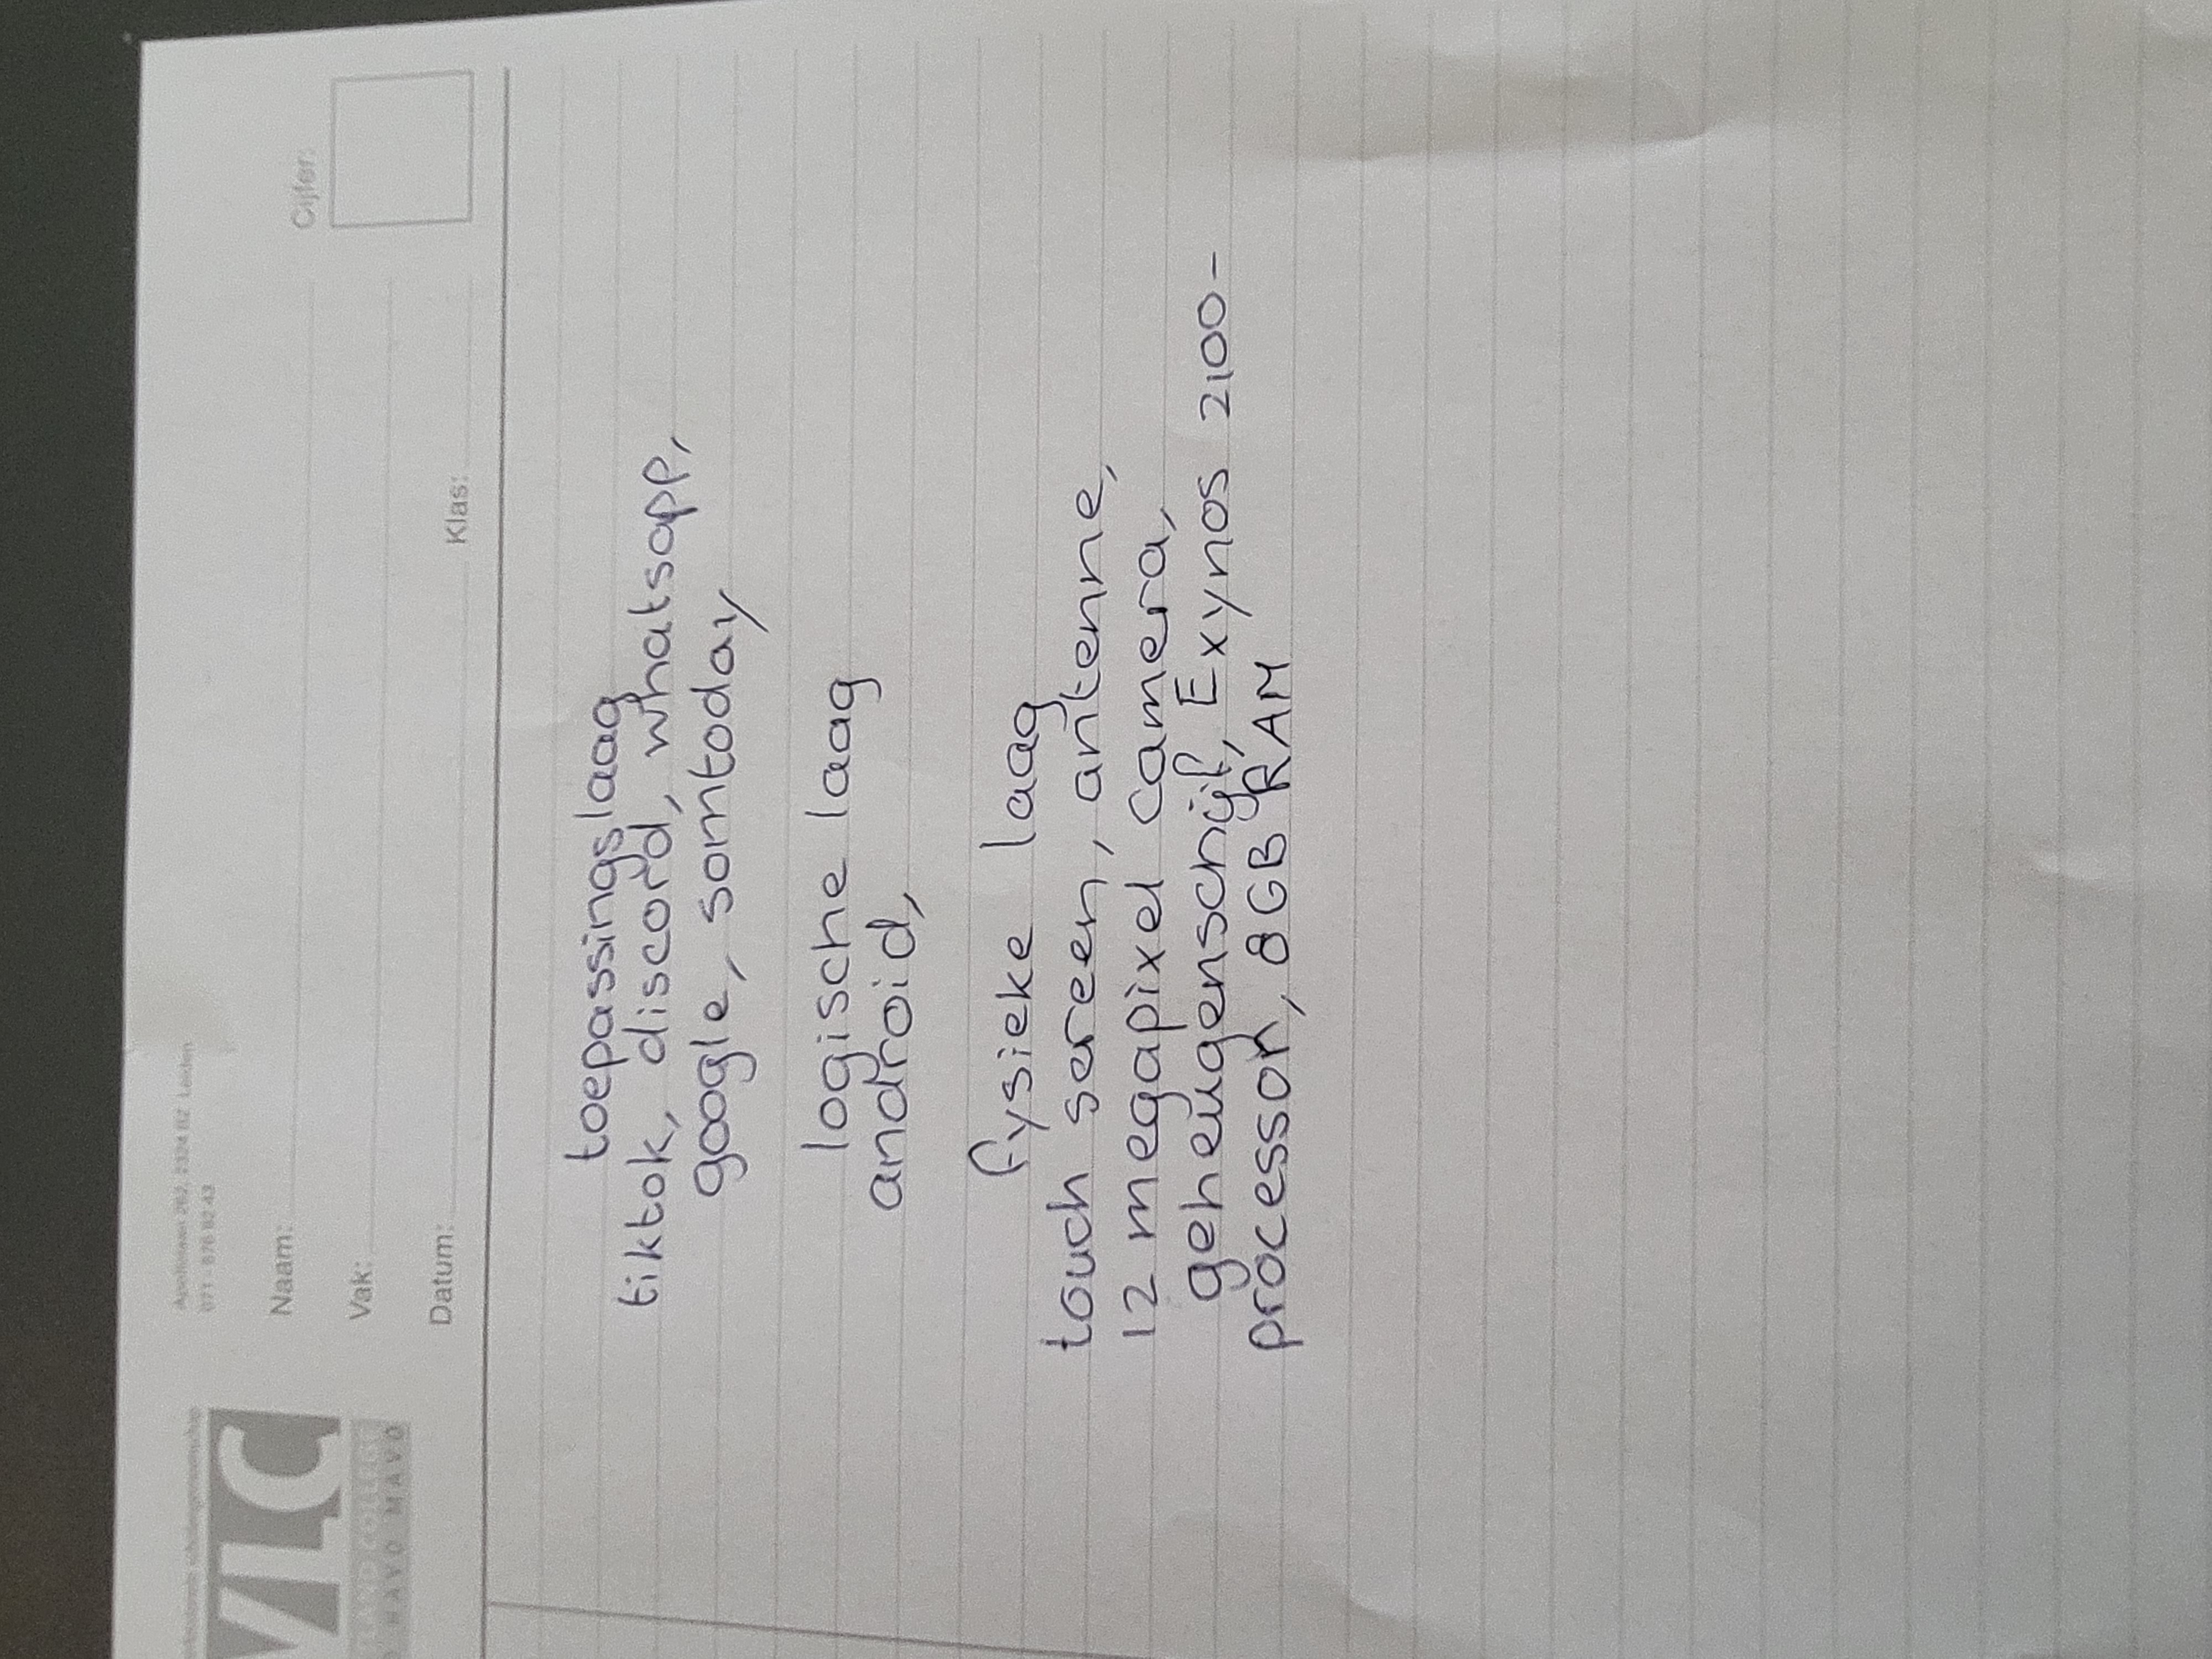 VLC
HAVO MAVO
Apollolaan 262, 2324 BZ Leiden
071 - 576 82 43
Naam:
Cijfer:
Vak:
Datum:
Klas:
toepassingslaag
tiktok, discord, whatsapp,
google, somtoday
logische laag
android,
fysieke laag
touch screen, antenne,
12 megapixel camera,
geheugenschijf, Exynos 2100-
processor, 8GB RAM